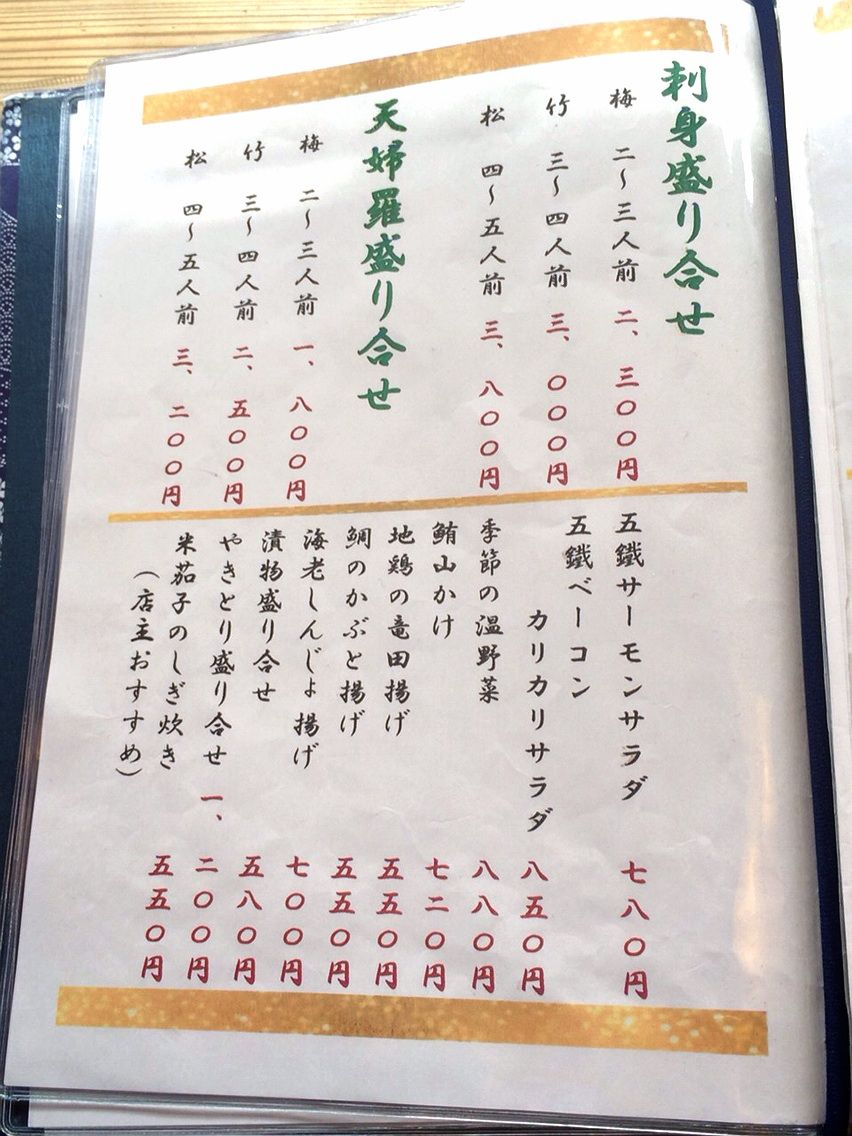 刺身盛り合せ
梅 二～三人前 二、三〇〇円
竹 三～四人前 三、〇〇〇円
松 四～五人前 三、八〇〇円
天婦羅盛り合せ
梅 二～三人前 一、八〇〇円
竹 三～四人前 二、五〇〇円
松 四～五人前 三、二〇〇円
五鐵サーモンサラダ 七八〇円
五鐵ベーコン
カリカリサラダ 八五〇円
季節の温野菜 八八〇円
鮪山かけ 七二〇円
地鶏の竜田揚げ 五五〇円
鯛のかぶと揚げ 五五〇円
海老しんじょ揚げ 七〇〇円
漬物盛り合せ 五八〇円
やきとり盛り合せ 一、二〇〇円
米茄子のしぎ炊き 五五〇円
（店主おすすめ）